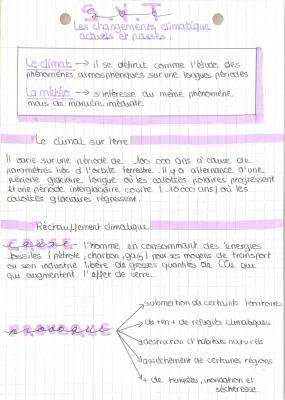 S.V.T
Les changements climatique
actuels et passés.
Le climat → il se définit comme l'étude des
phénomènes atmosphériques sur une longues périodes
La météo → s'intéresse au même phénomène
mais de manière immédiate
Le climat sur terre
Il varie sur une période de 100 000 ans à cause de
paramètres liés à l'orbite terrestre. Il y a alternance d'une
période glaciaire longue où les calottes polaires progressent
et une période interglaciaire courte (10000 ans) où les
calottes glaciaires régressent.
Réchauffement climatique
Cause l'homme en consommant des énergies
fossiles (pétrole, charbon, gaz) pour ses moyens de transport
ou son industrie libère de grosses quantités de CO2 qui
qui augmentent l'effet de serre.
→ submersion de certains territoires
→ de + en + de réfugiés climatiques
provoque → destruction d'habitats naturels
→ assèchement de certaines régions
→ + de tempêtes, inondation et
sécheresse.